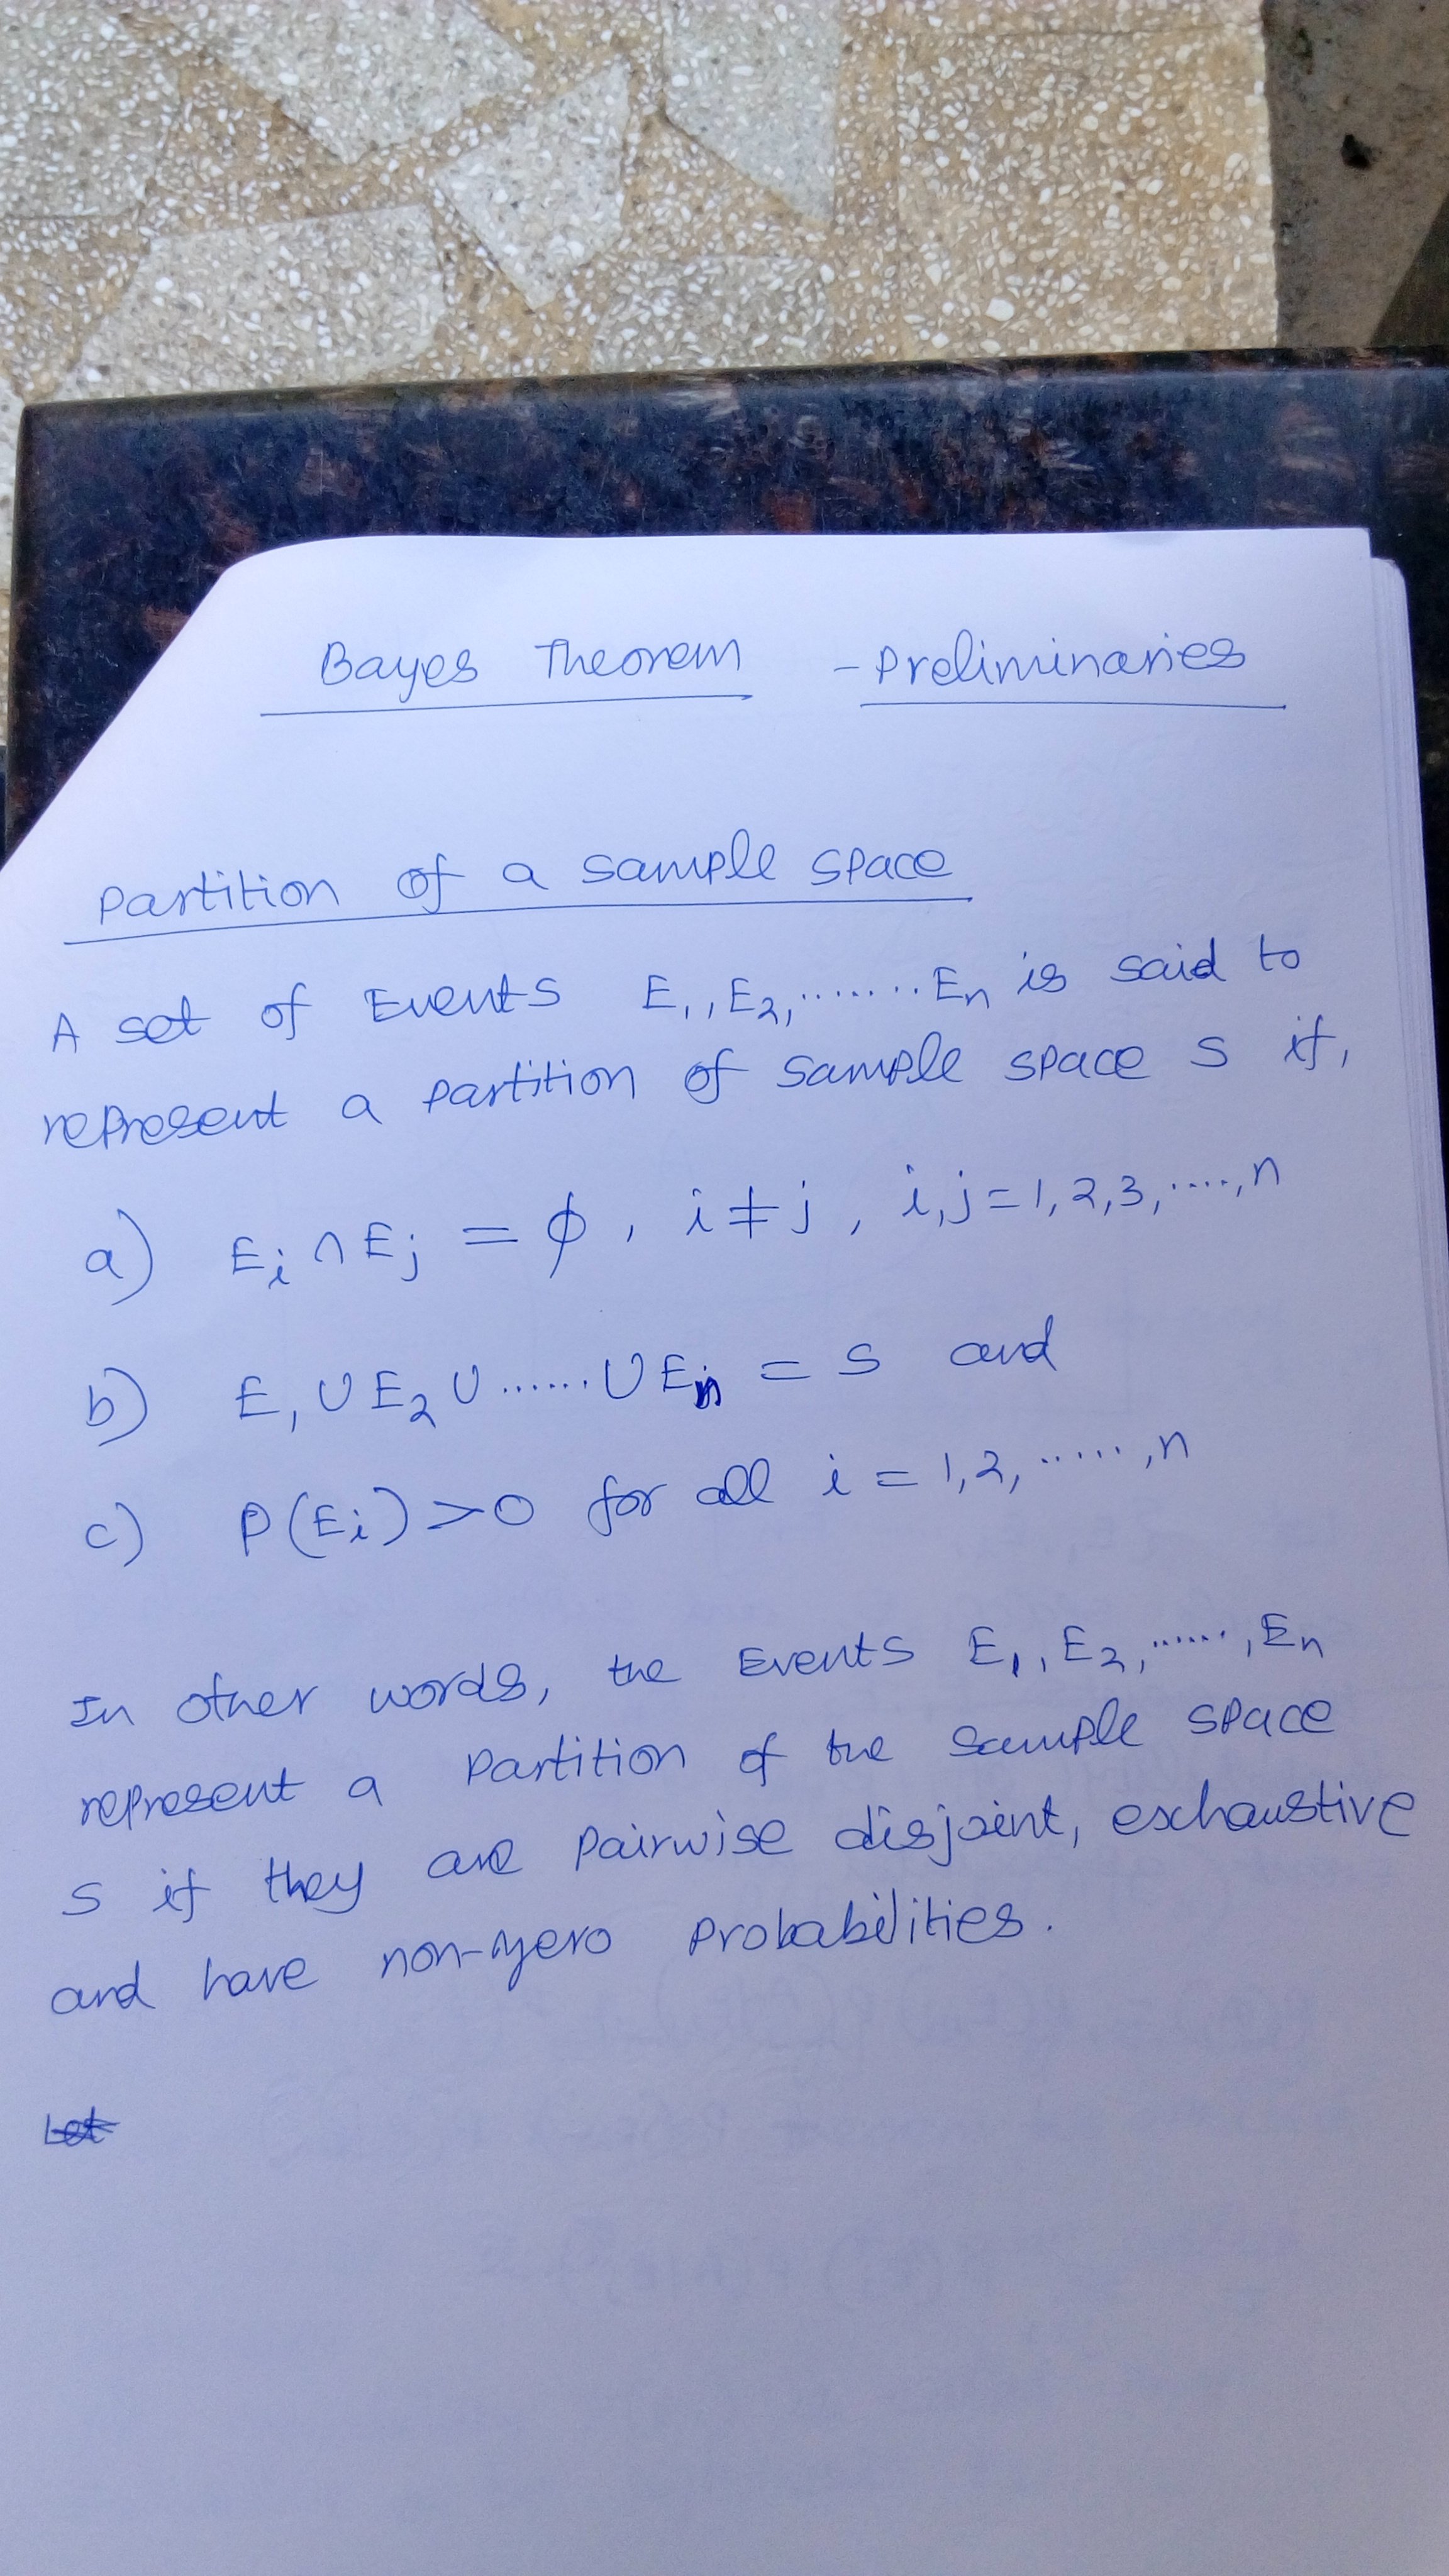 Bayes Theorem - Preliminaries
Partition of a sample space
A set of Events E₁, E₂, ........ Eₙ is said to
represent a partition of sample space S if,
a) Eᵢ ∩ Eⱼ = ϕ, i ≠ j, i, j = 1, 2, 3, ...., n
b) E₁ ∪ E₂ ∪ ...... ∪ Eₙ = S and
c) P(Eᵢ) > 0 for all i = 1, 2, ......, n
In other words, the Events E₁, E₂, ......, Eₙ
represent a Partition of the sample space
S if they are Pairwise disjoint, exhaustive
and have non-zero Probabilities.
Let